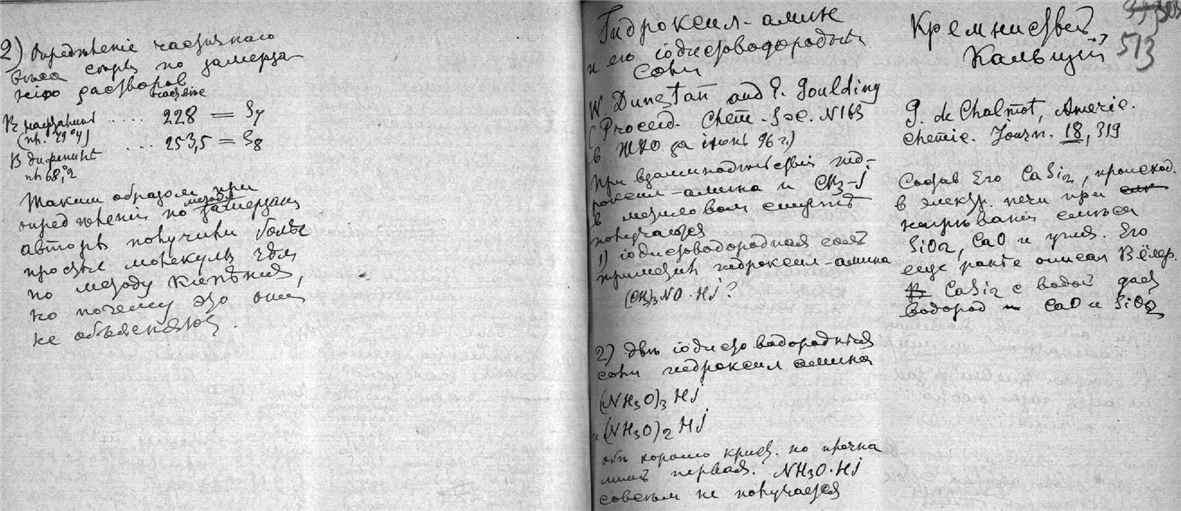 2) Определенiе частичнаго
вѣса сѣры по замерза
нiю растворов
частичн.
В нафталинѣ .... 228 = S7
(пл. 79°4)
В дифенилѣ ... 253,5 = S8
пл 68,°2
Таким образом при
определенiи по методу замерзан
авторы получили болѣе
простыя молекулы чѣм
по методу кипѣнiя,
но почему это они
не объясняют.
Гидроксил-амин
и его iодистоводородныя
соли
W. Dunstan and E. Goulding
(Proceed. Chem. Soc. N 163
в ЖХО за iюнь 96 г.)
При взаимодѣйствiи гид-
роксил-амина и CH3-J
в метиловом спиртѣ
получается
1) iодистоводородная соль
триметил гидроксил-амина
(CH3)3NO·HJ?
2) Двѣ iодистоводородныя
соли гидроксил амина
(NH3O)3 HJ
и (NH3O)2 HJ
обѣ хорошо крист. но прочна
лишь первая. NH3O·HJ
совсѣм не получается
513
Кремнистый
Кальцiй
P. de Chalmot, Americ.
Chemic. Journ. 18, 319
Состав его CaSi2, происход.
в электр. печи при
нагрѣванiи смѣси
SiO2, CaO и угля. Его
еще ранѣе описал Вёлер.
CaSi2 с водой дает
водород и CaO и SiO2